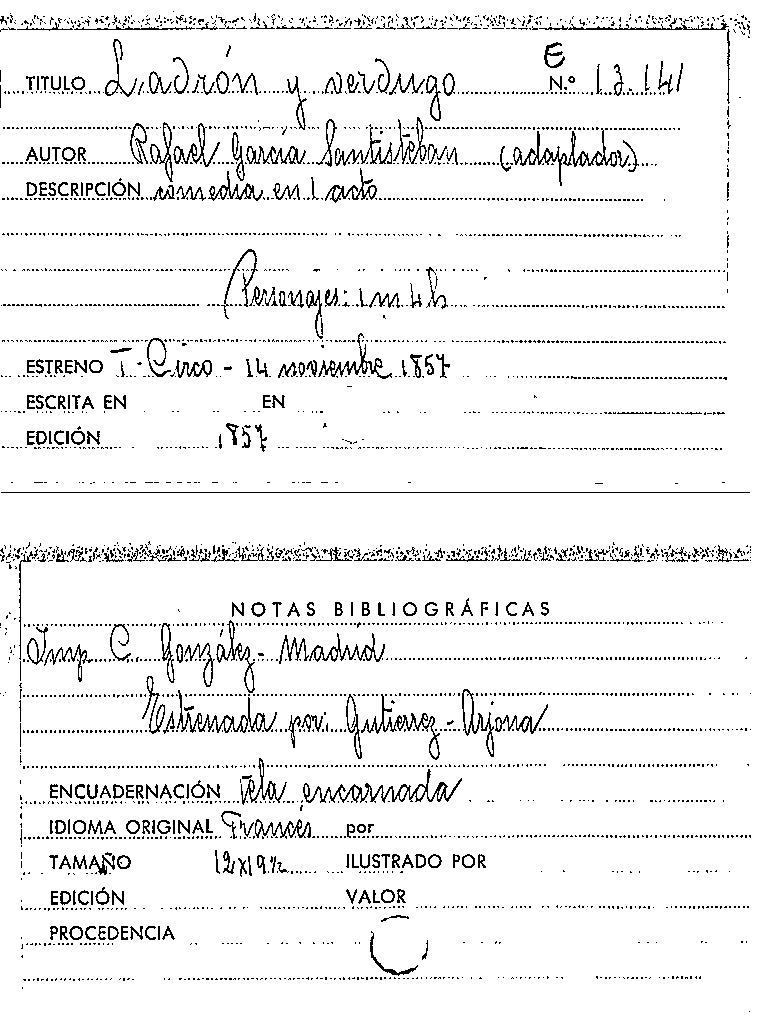 E
TITULO Ladrón y verdugo N.º 13.141
AUTOR Rafael García Santisteban (adaptador)
DESCRIPCIÓN comedia en 1 acto
Personajes: 1 m 4 h
ESTRENO T. Circo - 14 noviembre 1857
ESCRITA EN EN
EDICIÓN 1857
NOTAS BIBLIOGRÁFICAS
Imp C. González - Madrid
Estrenada por: Gutierrez - Arjona
ENCUADERNACIÓN tela encarnada
IDIOMA ORIGINAL Francés por
TAMAÑO 12x19½ ILUSTRADO POR
EDICIÓN VALOR
PROCEDENCIA